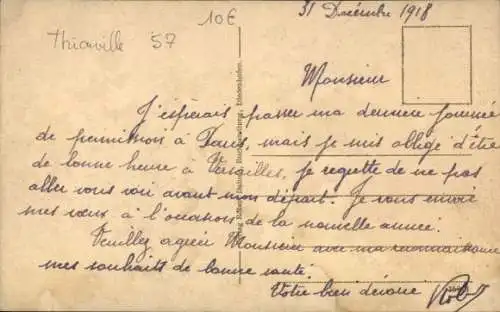 10€
31 Décembre 1918
Thionville 57
Monsieur
J'espérais passer ma dernière journée
de permission à Paris, mais je suis obligé d'être
de bonne heure à Versailles, je regrette de ne pas
aller vous voir avant mon départ. Je vous envoie
mes vœux à l'occasion de la nouvelle année.
Veuillez agréer Monsieur avec ma reconnaissance
mes souhaits de bonne santé.
Votre bien dévoué